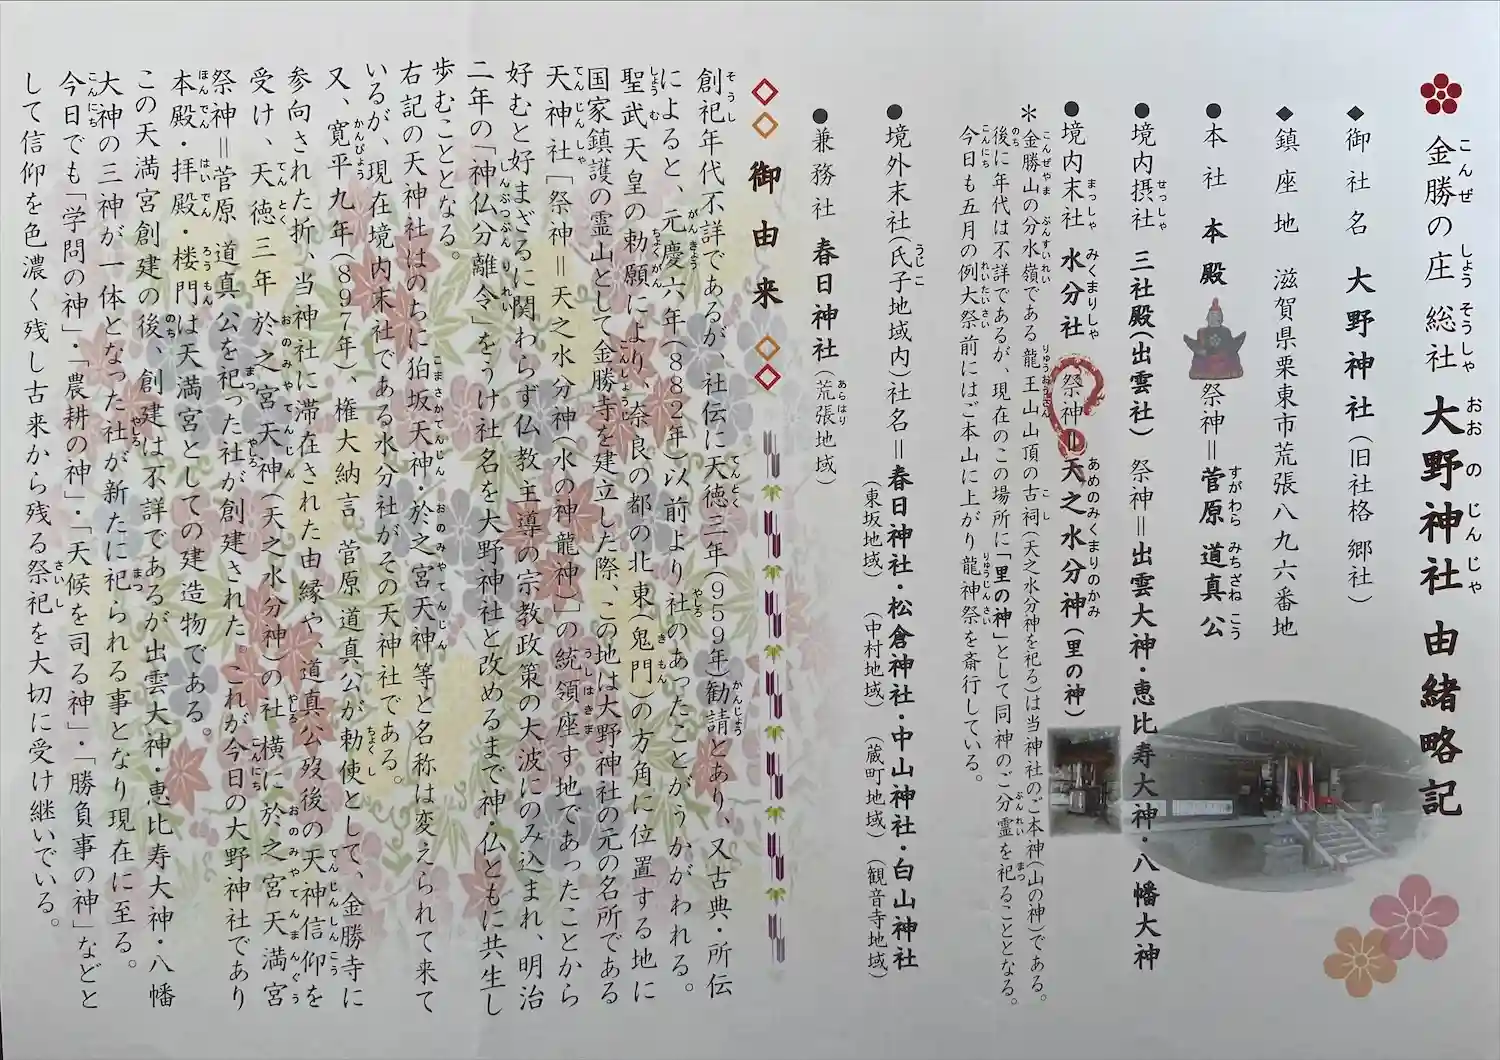 金勝の庄 総社 大野神社 由緒略記
◆御社名 大野神社(旧社格 郷社)
◆鎮座地 滋賀県栗東市荒張八九六番地
●本社 本殿 祭神=菅原 道真 公
●境内摂社 三社殿(出雲社) 祭神=出雲大神・恵比寿大神・八幡大神
●境内末社 水分社 祭神=天之水分神(里の神)
＊金勝山の分水嶺である龍王山山頂の古祠(天之水分神を祀る)は当神社のご本神(山の神)である。
後に年代は不詳であるが、現在のこの場所に「里の神」として同神のご分霊を祀ることとなる。
今日も五月の例大祭前にはご本山に上がり龍神祭を斎行している。
●境外末社(氏子地域内)社名=春日神社・松倉神社・中山神社・白山神社
(東坂地域) (中村地域) (蔵町地域) (観音寺地域)
●兼務社 春日神社(荒張地域)
◇◇ 御由来 ◇◇
創祀年代不詳であるが、社伝に天徳三年(959年)勧請とあり、又古典・所伝
によると、元慶六年(882年)以前より社のあったことがうかがわれる。
聖武天皇の勅願により、奈良の都の北東(鬼門)の方角に位置する地に
国家鎮護の霊山として金勝寺を建立した際、この地は大野神社の元の名所である
天神社「祭神=天之水分神(水の神龍神)」の統領座す地であったことから
好むと好まざるに関わらず仏教主導の宗教政策の大波にのみ込まれ、明治
二年の「神仏分離令」をうけ社名を大野神社と改めるまで神・仏ともに共生し
歩むこととなる。
右記の天神社はのちに狛坂天神・於之宮天神等と名称は変えられて来て
いるが、現在境内末社である水分社がその天神社である。
又、寛平九年(897年)、権大納言 菅原道真公が勅使として、金勝寺に
参向された折、当神社に滞在された由縁や、道真公歿後の天神信仰を
受け、天徳三年 於之宮天神(天之水分神)の社横に於之宮天満宮
祭神=菅原 道真 公を祀った社が創建された。これが今日の大野神社であり
本殿・拝殿・楼門は天満宮としての建造物である。
この天満宮創建の後、創建は不詳であるが出雲大神・恵比寿大神・八幡
大神の三神が一体となった社が新たに祀られる事となり現在に至る。
今日でも「学問の神」・「農耕の神」・「天候を司る神」・「勝負事の神」などと
して信仰を色濃く残し古来から残る祭祀を大切に受け継いでいる。